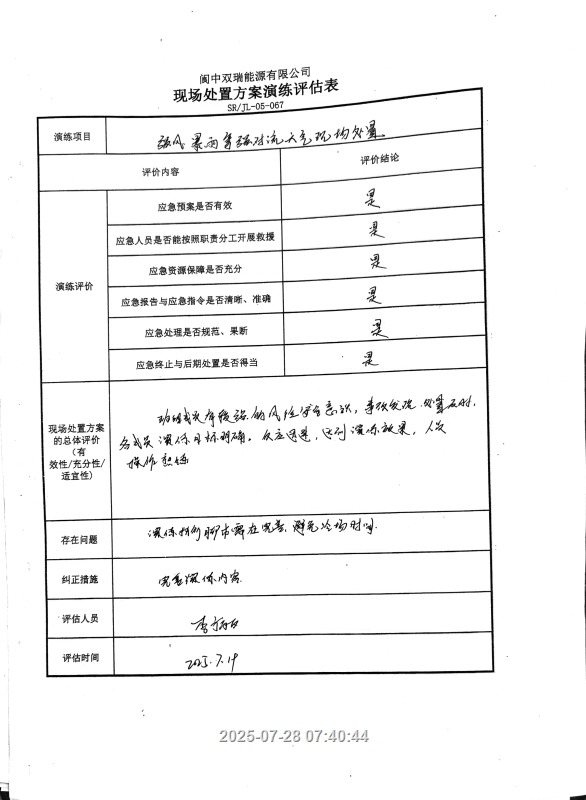 阆中双瑞能源有限公司
现场处置方案演练评估表
SR/JL-05-067
演练项目
强风暴雨等强对流天气现场处置
评价内容
评价结论
演练评价
应急预案是否有效
是
应急人员是否能按照职责分工开展救援
是
应急资源保障是否充分
是
应急报告与应急指令是否清晰、准确
是
应急处理是否规范、果断
是
应急终止与后期处置是否得当
是
现场处置方案
的总体评价
(有
效性/充分性/
适宜性)
功组成员有较强的风险安全意识,事项发现、处置及时,
各成员演练目标明确。反应迅速,达到演练效果,人员
操作熟练
存在问题
演练 需在完善,避免冷场时间.
纠正措施
完善演练内容.
评估人员
李
评估时间
2025.7.19
2025-07-28 07:40:44